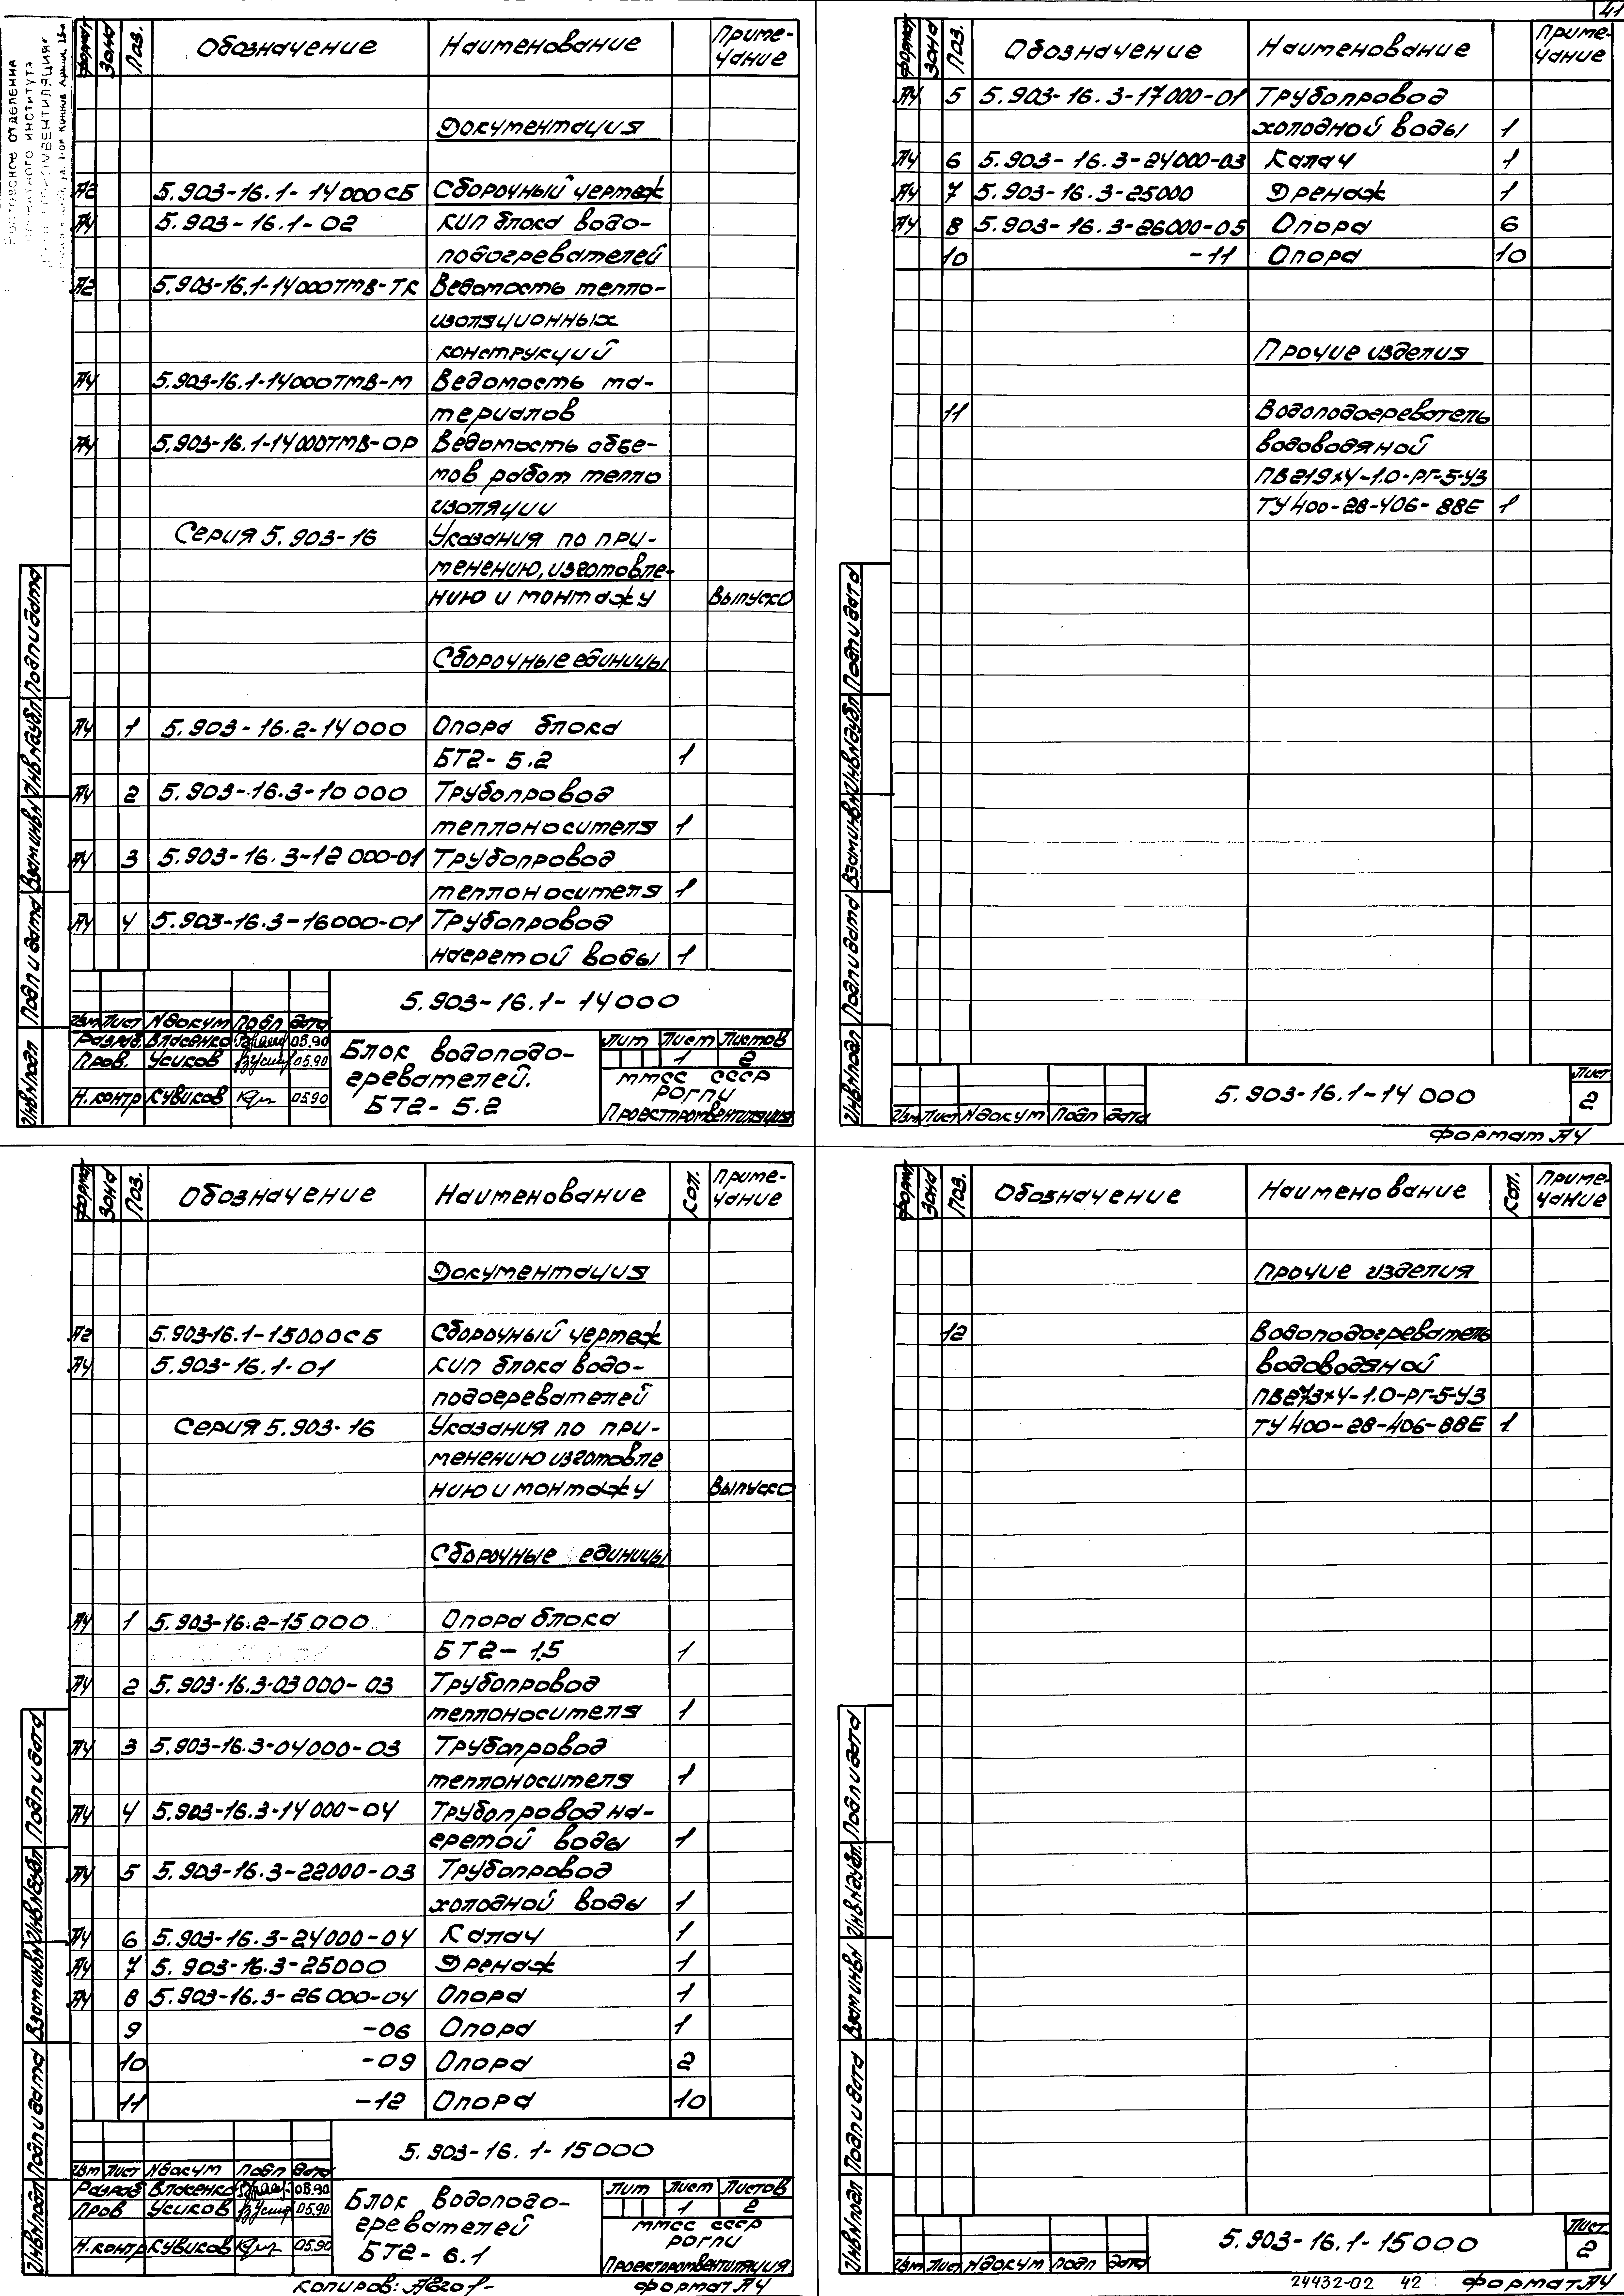 41
Обозначение Наименование Приме-
чание
Формат Зона Поз.
Документация
А2 5.903-16.1-14000СБ Сборочный чертеж
А4 5.903-16.1-02 КИП блока водо-
подогревателей
А2 5.903-16.1-14000ТМВ-ТК Ведомость тепло-
изоляционных
конструкций
А4 5.903-16.1-14000ТМВ-М Ведомость ма-
териалов
А4 5.903-16.1-14000ТМВ-ОР Ведомость объе-
мов работ тепло
изоляции
Серия 5.903-16 Указания по при-
менению, изготовле-
нию и монтажу Выпуск 0
Сборочные единицы
А4 1 5.903-16.2-14000 Опора блока
БТ2-5.2 1
А4 2 5.903-16.3-10000 Трубопровод
теплоносителя 1
А4 3 5.903-16.3-12000-01 Трубопровод
теплоносителя 1
А4 4 5.903-16.3-16000-01 Трубопровод
нагретой воды 1
Инв№подл Подп и дата Взам инв№ Инв№дубл Подп и дата
5.903-16.1-14000
Изм Лист №докум Подп Дата
Разраб. Власенко 05.90
Пров. Усиков 05.90
Н.контр Кувиков 05.90
Блок водоподо-
гревателей.
БТ2-5.2
Лит Лист Листов
1 2
ММСС СССР
РОГПИ
Проектпромвентиляция
Формат Зона Поз. Обозначение Наименование Приме-
чание
А4 5 5.903-16.3-17000-01 Трубопровод
холодной воды 1
А4 6 5.903-16.3-24000-03 Калач 1
А4 7 5.903-16.3-25000 Дренаж 1
А4 8 5.903-16.3-26000-05 Опора 6
10 -11 Опора 10
Прочие изделия
11 Водоподогреватель
водоводяной
ПВ219х4-1.0-РГ-5-У3
ТУ 400-28-406-88Е 1
Инв№подл Подп и дата Взам инв№ Инв№дубл Подп и дата
Изм Лист №докум Подп Дата
5.903-16.1-14000
Лист
2
Формат А4
Формат Зона Поз. Обозначение Наименование Кол. Приме-
чание
Документация
А2 5.903-16.1-15000СБ Сборочный чертеж
А4 5.903-16.1-01 КИП блока водо-
подогревателей
Серия 5.903-16 Указания по при-
менению изготовле
нию и монтажу Выпуск 0
Сборочные единицы
А4 1 5.903-16.2-15000 Опора блока
БТ2-1.5 1
А4 2 5.903-16.3-03000-03 Трубопровод
теплоносителя 1
А4 3 5.903-16.3-04000-03 Трубопровод
теплоносителя 1
А4 4 5.903-16.3-14000-04 Трубопровод на-
гретой воды 1
А4 5 5.903-16.3-22000-03 Трубопровод
холодной воды 1
А4 6 5.903-16.3-24000-04 Калач 1
А4 7 5.903-16.3-25000 Дренаж 1
А4 8 5.903-16.3-26000-04 Опора 1
9 -06 Опора 1
10 -09 Опора 2
11 -12 Опора 10
Инв№подл Подп и дата Взам инв№ Инв№дубл Подп и дата
5.903-16.1-15000
Изм Лист №докум Подп Дата
Разраб Власенко 05.90
Пров Усиков 05.90
Н.контр Кувиков 05.90
Блок водоподо-
гревателей
БТ2-6.1
Лит Лист Листов
1 2
ММСС СССР
РОГПИ
Проектпромвентиляция
Копиров:
Формат А4
Формат Зона Поз. Обозначение Наименование Кол. Приме-
чание
Прочие изделия
12 Водоподогреватель
водоводяной
ПВ273х4-1.0-РГ-5-У3
ТУ 400-28-406-88Е 1
Инв№подл Подп и дата Взам инв№ Инв№дубл Подп и дата
Изм Лист №докум Подп Дата
5.903-16.1-15000
Лист
2
24432-02 42 Формат А4